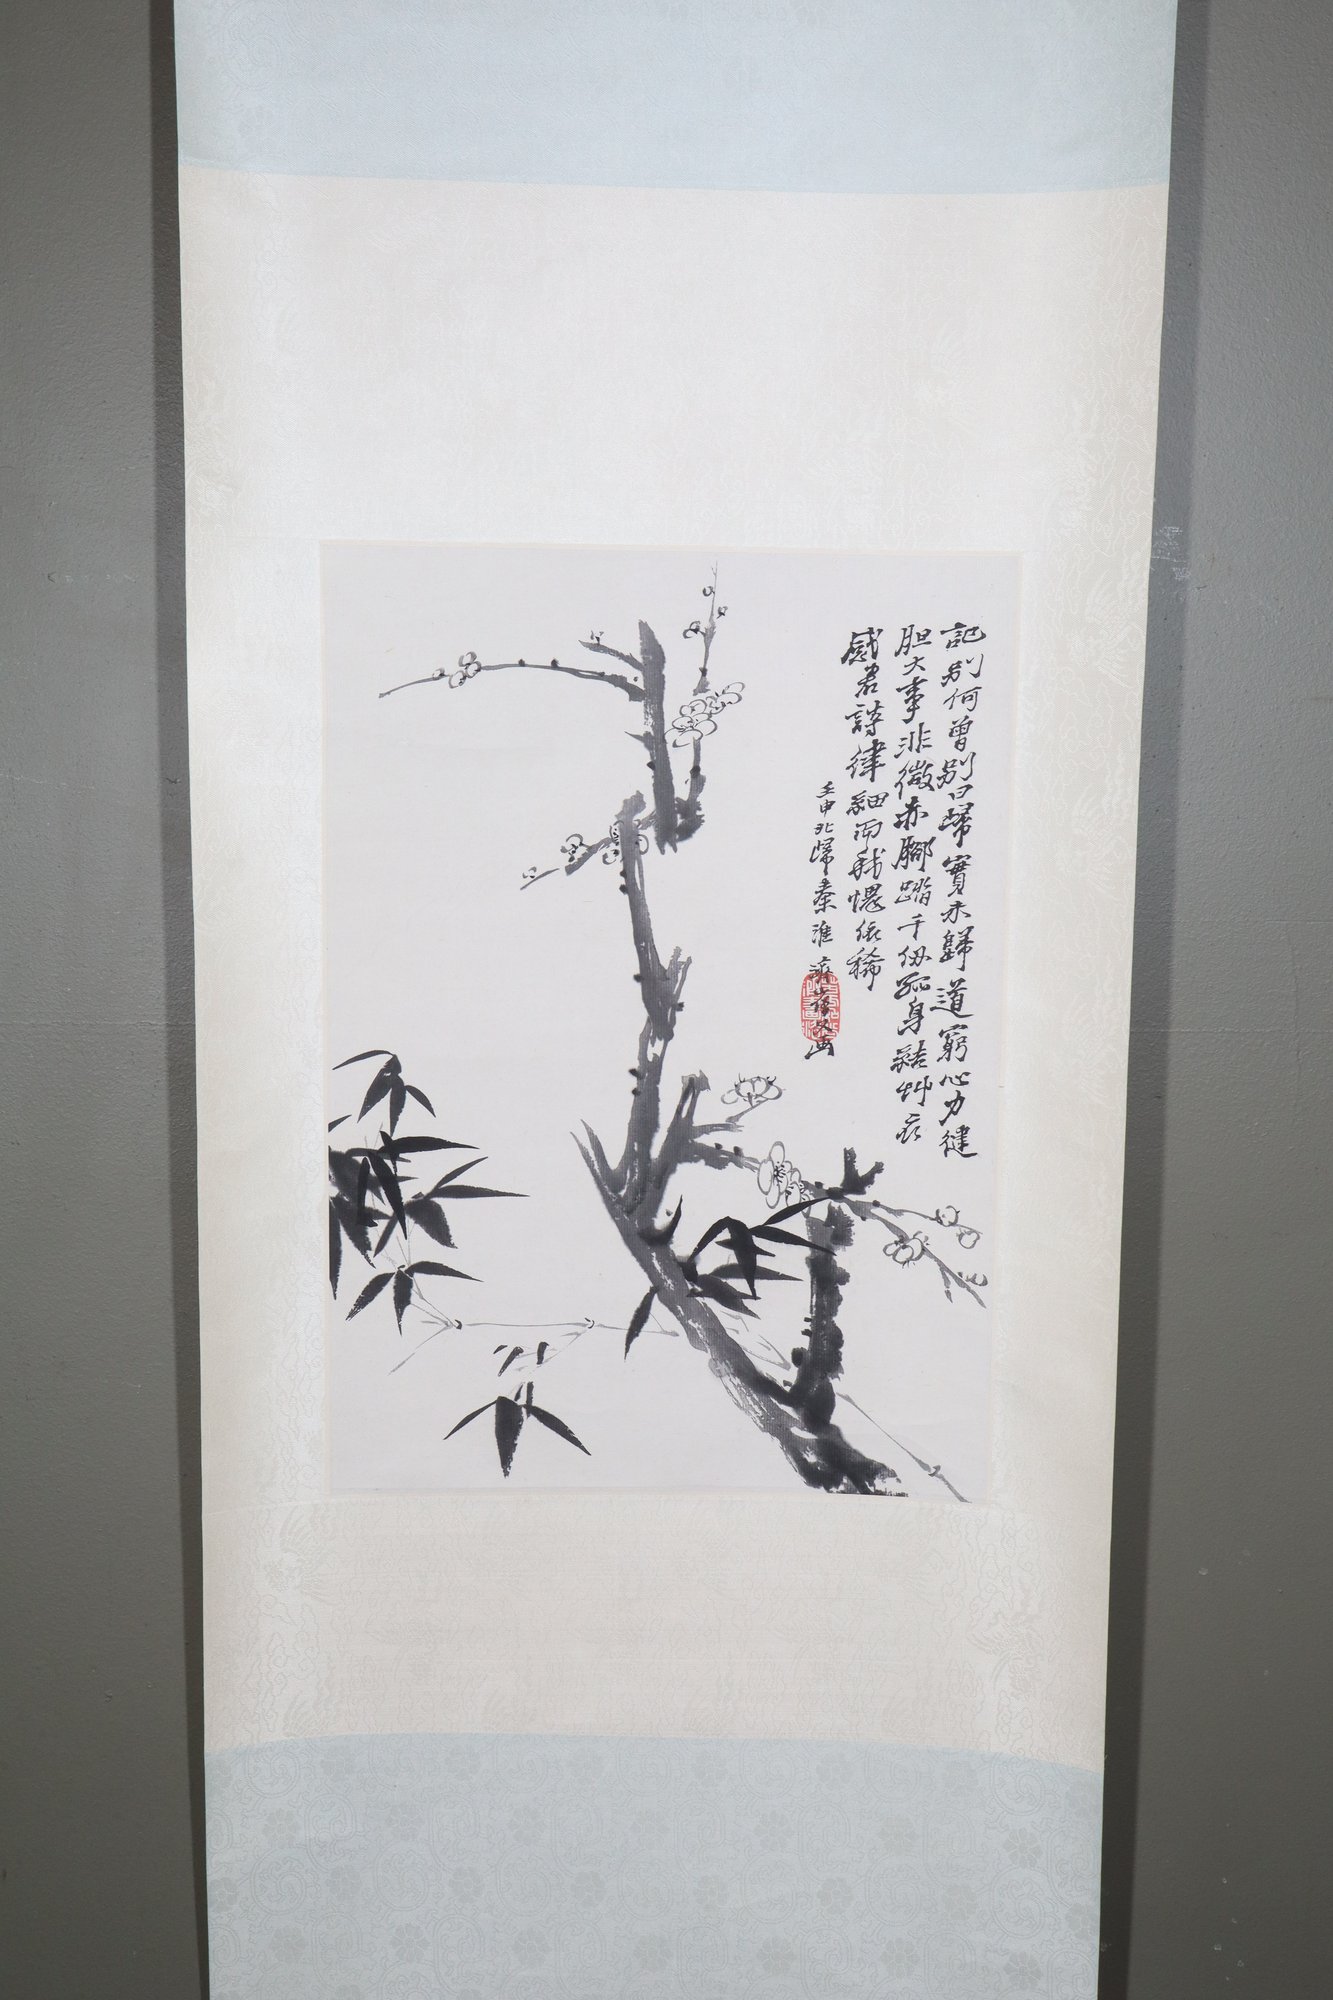 記別何曾別曰歸實未歸道窮心力健
胆大事非微赤腳踏千仞孤身結艸衣
感君詩律細而我愧依稀
壬申北歸秦淮